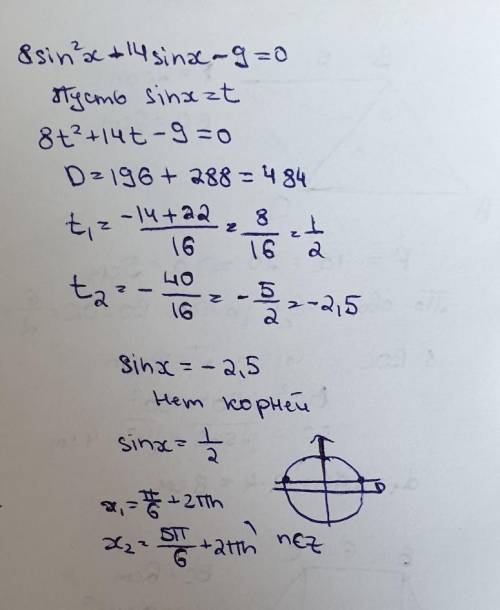 8sin²x+14sinx-9=0
Пусть sinx=t
8t²+14t-9=0
D=196+288=484
t₁=(-14+22)/16=8/16=1/2
t₂=-40/16=-5/2=-2,5
sinx=-2,5
Нет корней
sinx=1/2
x₁=π/6+2πn
x₂=5π/6+2πn, n∈Z